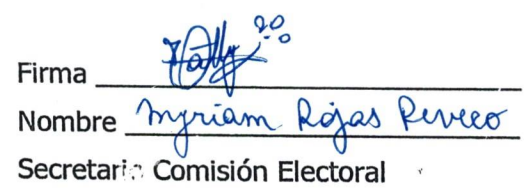 Firma
Nombre Myriam Rojas Reveco
Secretaria Comisión Electoral